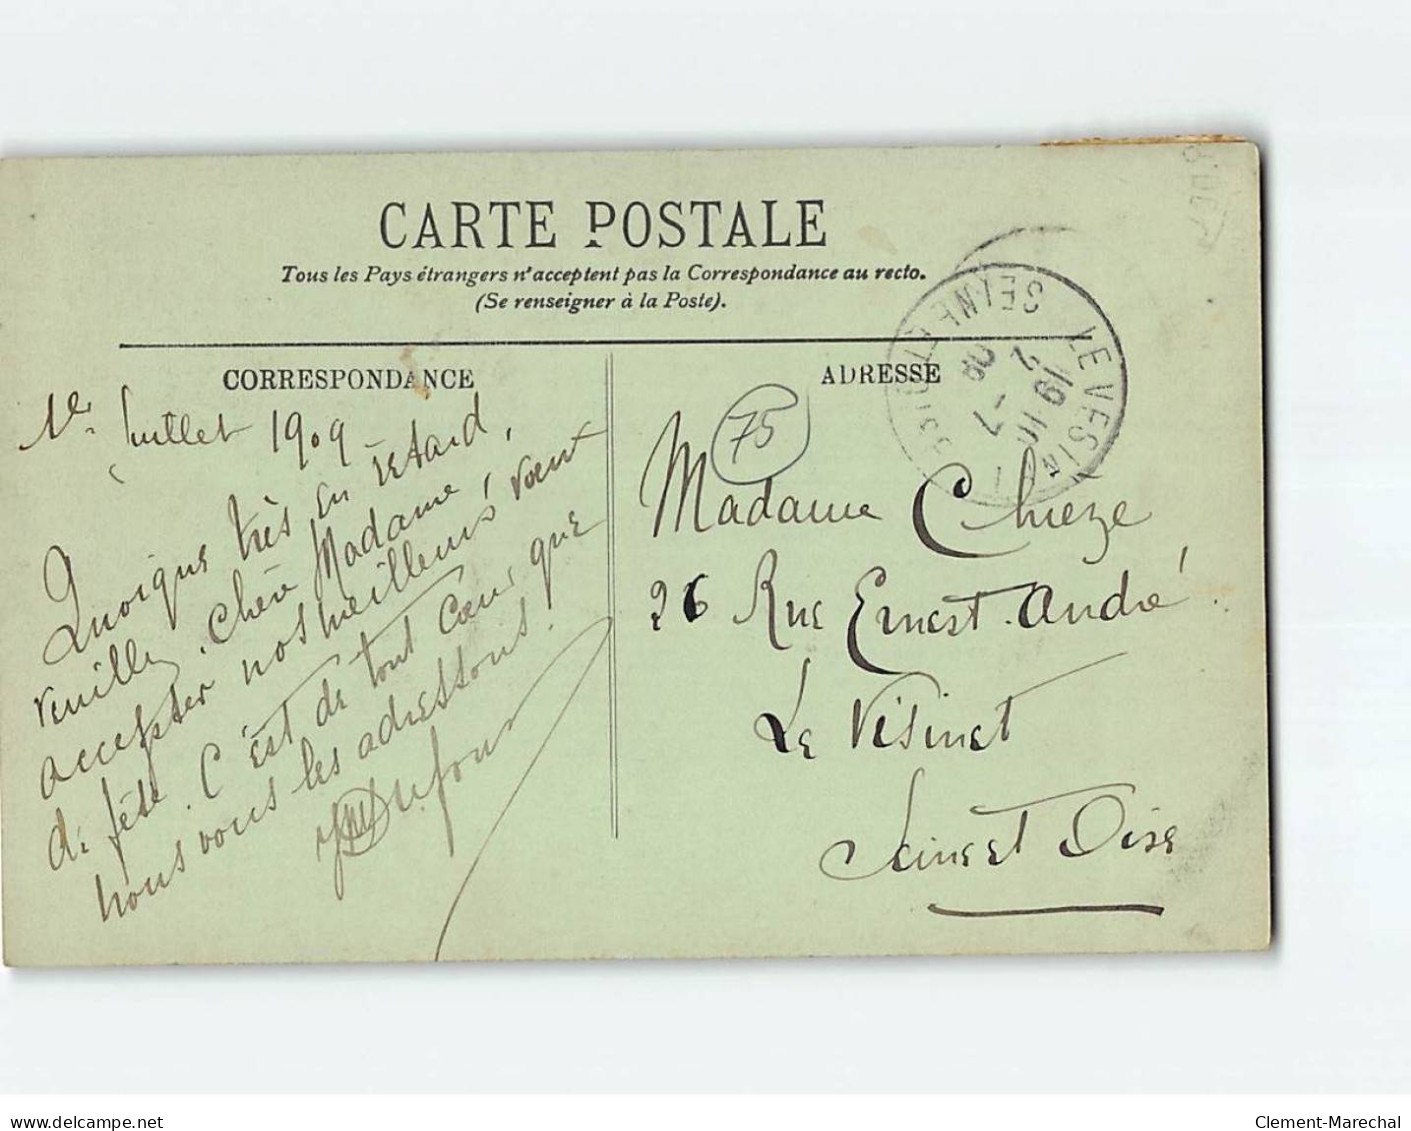 CARTE POSTALE
Tous les Pays étrangers n'acceptent pas la Correspondance au recto.
(Se renseigner à la Poste).
CORRESPONDANCE
1er Juillet 1909
Quoique très en retard,
veuillez, chère Madame,
accepter nos meilleurs vœux
de fête. C'est de tout cœur que
nous vous les adressons.
Dufour
ADRESSE
75
LE VESINET
SEINE ET OISE
19 10
2 -7 09
Madame Chieze
26 Rue Ernest-André
Le Vésinet
Seine et Oise
www.delcampe.net
Clement-Marechal